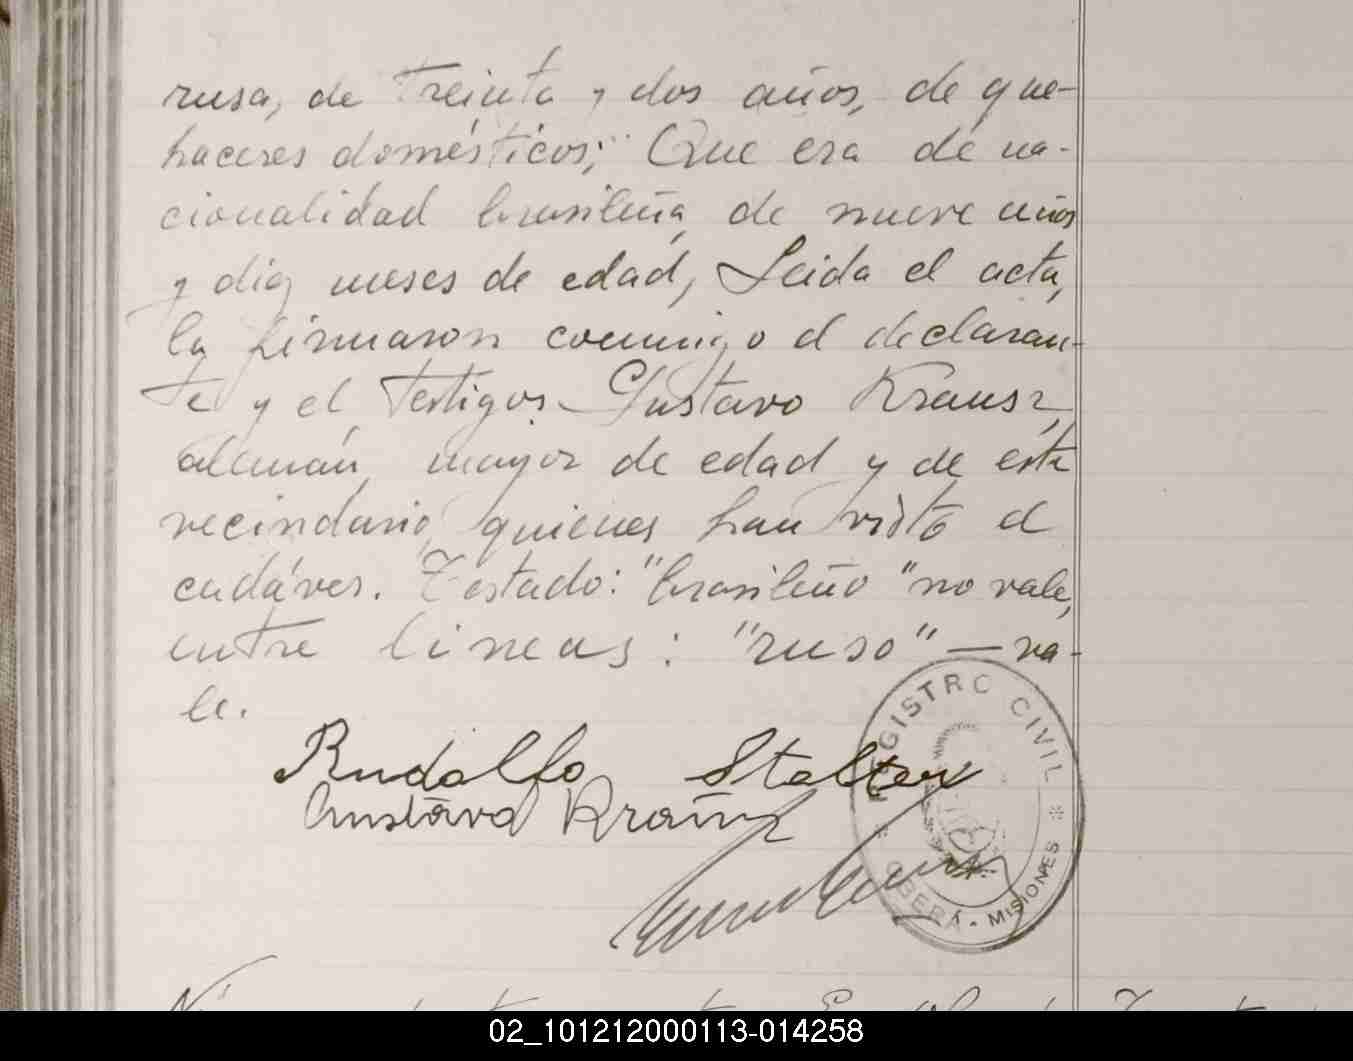 rusa, de treinta y dos años, de que-
haceres domésticos; Que era de na-
cionalidad brasileña, de nueve años
y diez meses de edad, Leida el acta,
la firmaron conmigo el declaran-
te y el testigos Gustavo Krausz,
alemán, mayor de edad y de este
vecindario, quienes han visto el
cadáver. Testado: "brasileño" no vale,
entre lineas: "ruso" — va-
le.
Rudolfo Stalter
Gustavo
REGISTRO CIVIL
* OBERÁ - MISIONES *
02_101212000113-014258